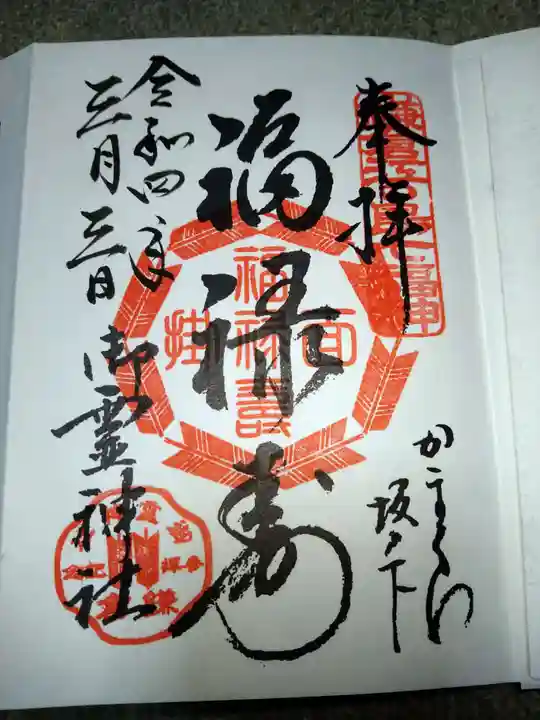 奉拝
かまくら
坂ノ下
福禄寿
福禄寿
面
掛
令和四年
三月三日
御霊神社